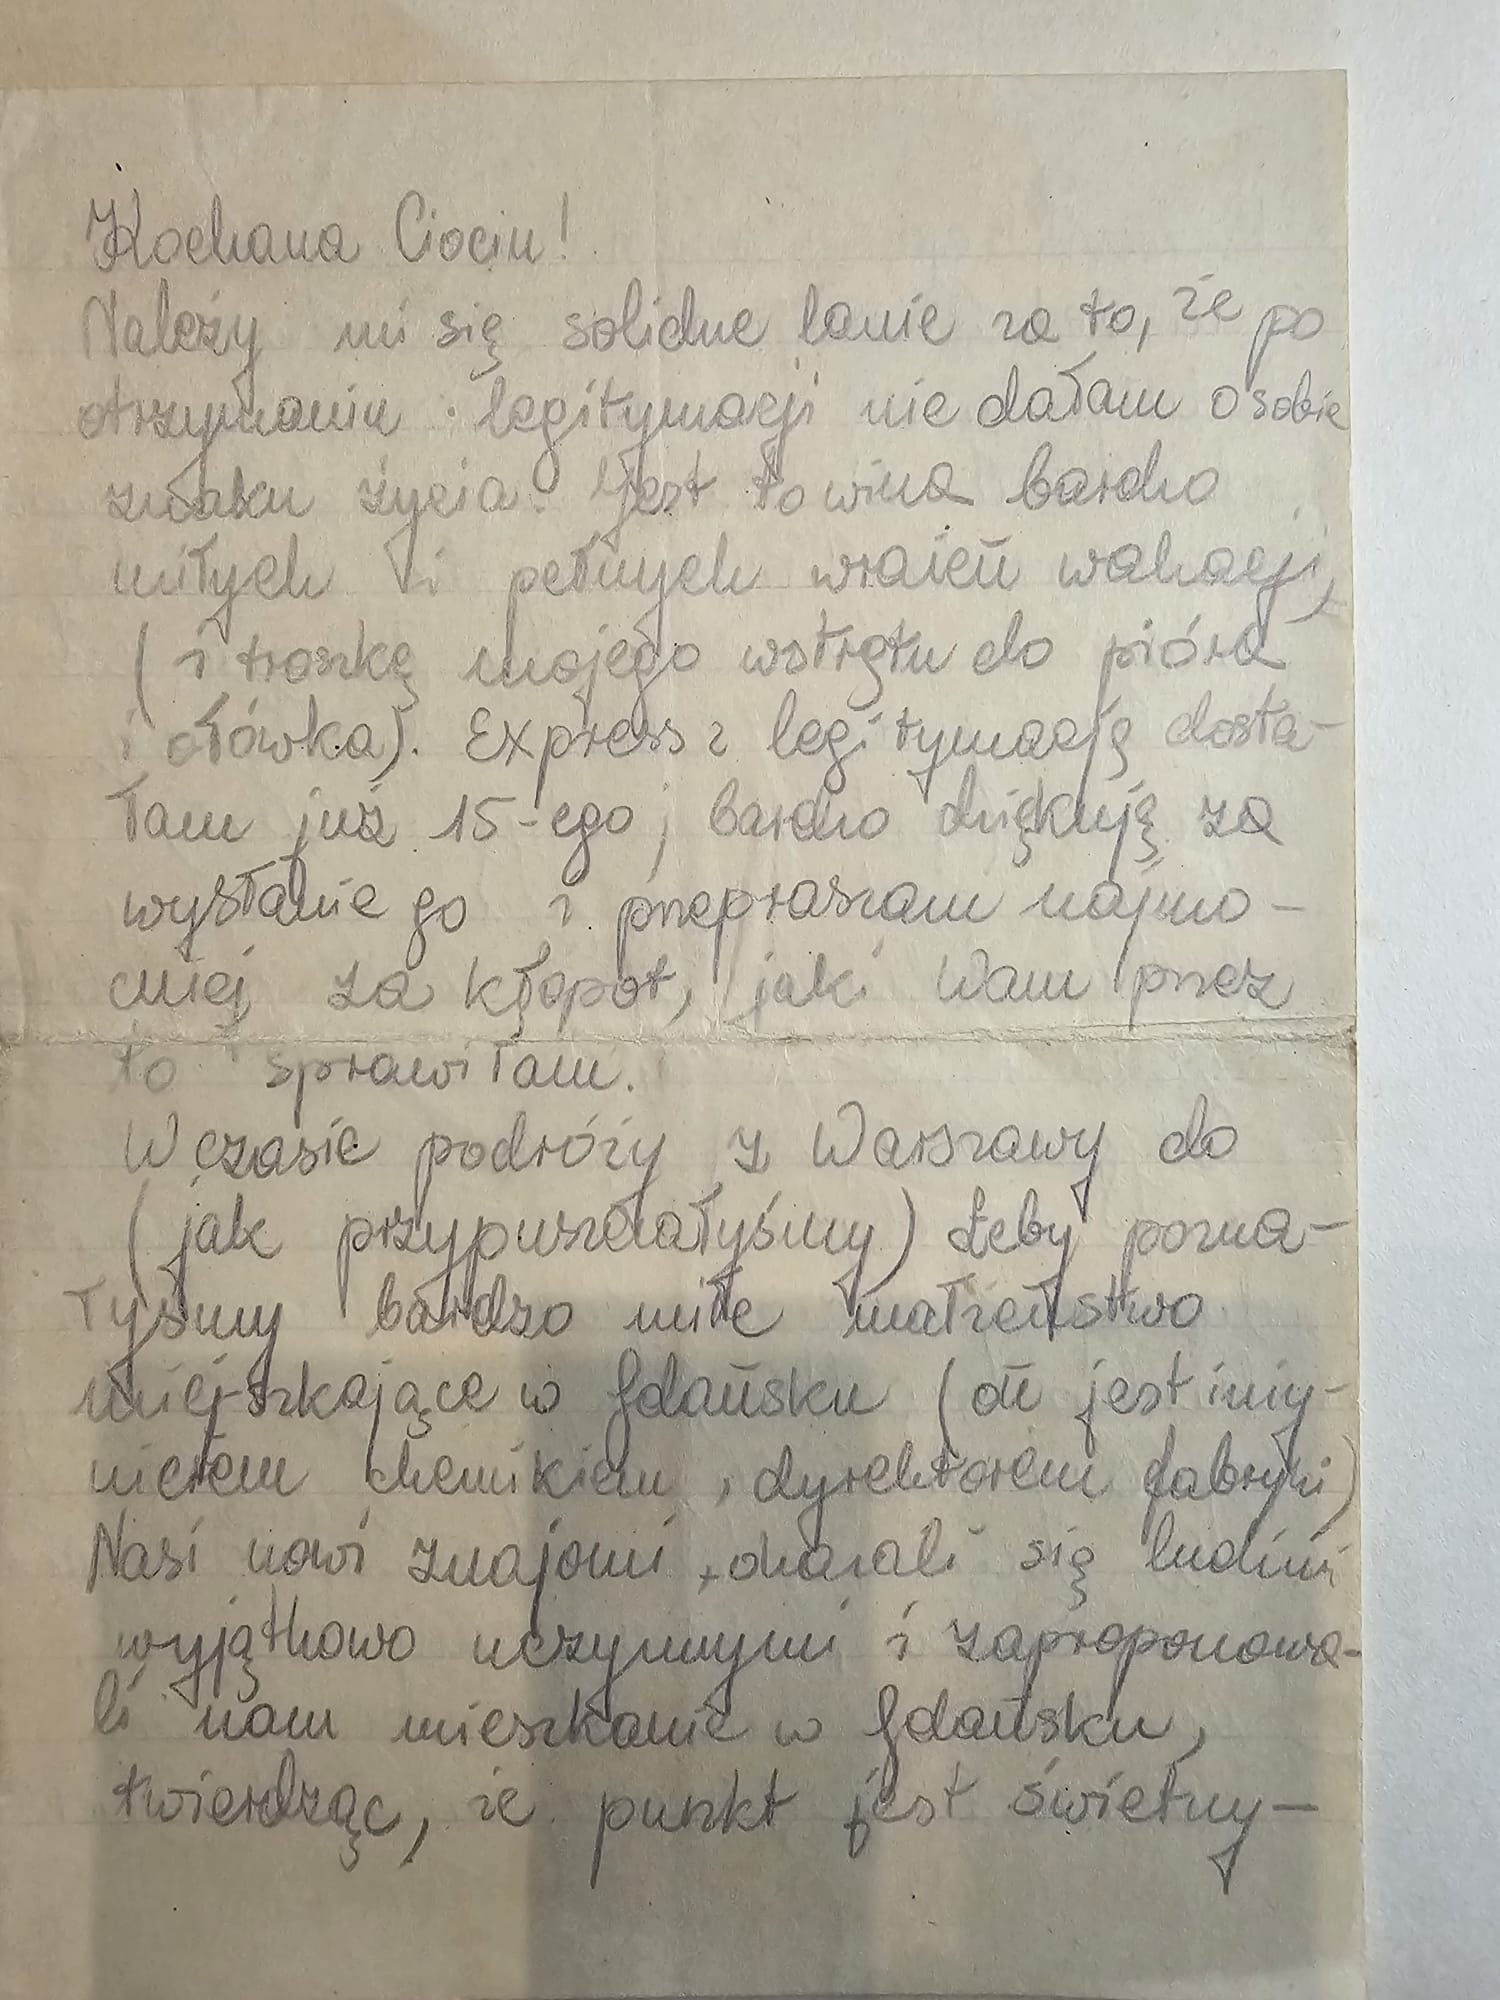 Kochana Ciociu!
Należy mi się solidne lanie za to, że po
otrzymaniu legitymacji nie dałam o sobie
znaku życia. Jest to wina bardzo
miłych i pełnych wrażeń wakacji,
(i troszkę mojego wstrętu do pióra
i ołówka). Express z legitymacją dosta-
łam już 15-ego; bardzo dziękuję za
wysłanie go i przepraszam najmo-
cniej za kłopot, jaki Wam przez
to sprawiłam.
W czasie podróży z Warszawy do
(jak przypuszczałyśmy) Łeby pozna-
łyśmy bardzo miłe małżeństwo
mieszkające w Gdańsku (on jest inży-
nierem chemikiem, dyrektorem fabryki)
Nasi nowi znajomi, okazali się ludźmi
wyjątkowo uczynnymi i zaproponowa-
li nam mieszkanie w Gdańsku,
twierdząc, że punkt jest świetny-